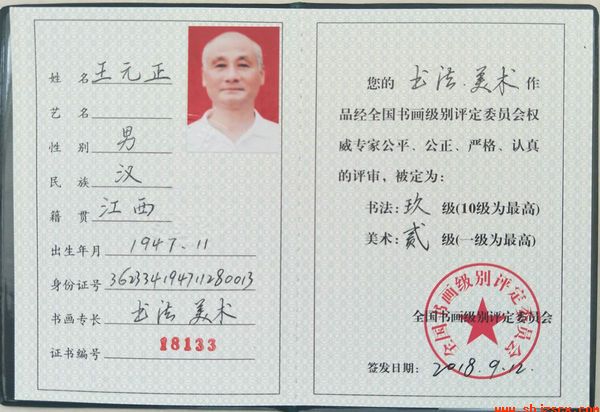 姓名 王元正
艺名
性别 男
民族 汉
籍贯 江西
出生年月 1947.11
身份证号 362334194711280013
书画专长 书法 美术
证书编号 18133
您的 书法.美术 作
品经全国书画级别评定委员会权
威专家公平、公正、严格、认真
的评审，被定为：
书法：玖 级(10级为最高)
美术：贰 级(一级为最高)
全国书画级别评定委员会
全国书画级别评定委员会
签发日期：2018.9.12.